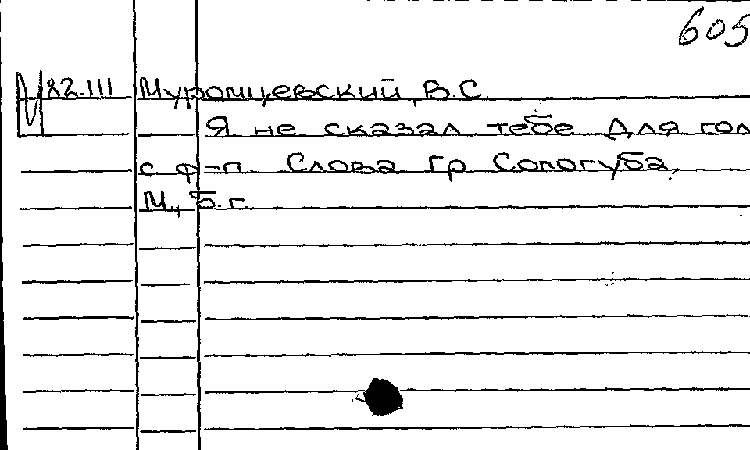 605
И 82.III Муромцевский, В.С.
Я не сказал тебе Для гол
с ф-п. Слова Гр Сологуба.
М., б.г.